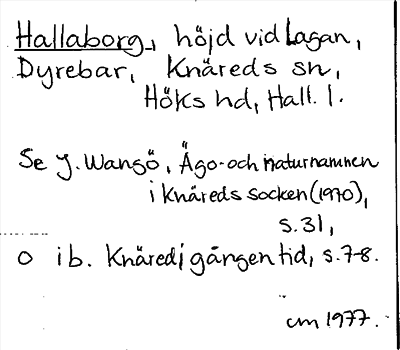 Hallaborg, höjd vid Lagan,
Dyrebar, Knäreds sn,
Höks hd, Hall. l.
Se J. Wangö, Ägo- och naturnamnen
i Knäreds socken (1970),
s. 31,
o ib. Knäred i gången tid, s. 7-8.
cm 1977.